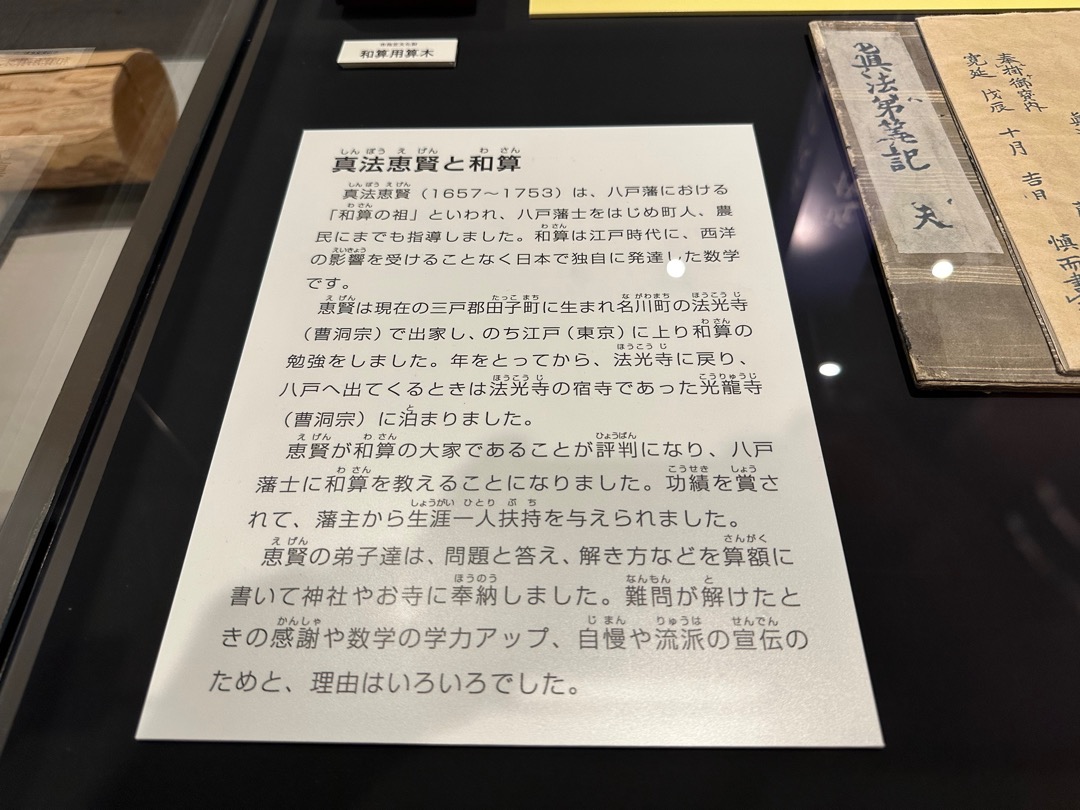 和算用算木
真法恵賢と和算
真法恵賢（1657～1753）は、八戸藩における
「和算の祖」といわれ、八戸藩士をはじめ町人、農
民にまでも指導しました。和算は江戸時代に、西洋
の影響を受けることなく日本で独自に発達した数学
です。
恵賢は現在の三戸郡田子町に生まれ名川町の法光寺
（曹洞宗）で出家し、のち江戸（東京）に上り和算の
勉強をしました。年をとってから、法光寺に戻り、
八戸へ出てくるときは法光寺の宿寺であった光龍寺
（曹洞宗）に泊まりました。
恵賢が和算の大家であることが評判になり、八戸
藩士に和算を教えることになりました。功績を賞さ
れて、藩主から生涯一人扶持を与えられました。
恵賢の弟子達は、問題と答え、解き方などを算額に
書いて神社やお寺に奉納しました。難問が解けたと
きの感謝や数学の学力アップ、自慢や流派の宣伝の
ためと、理由はいろいろでした。
眞法弟算記
奉掛御宝内
寛延 戊辰 十月 吉月